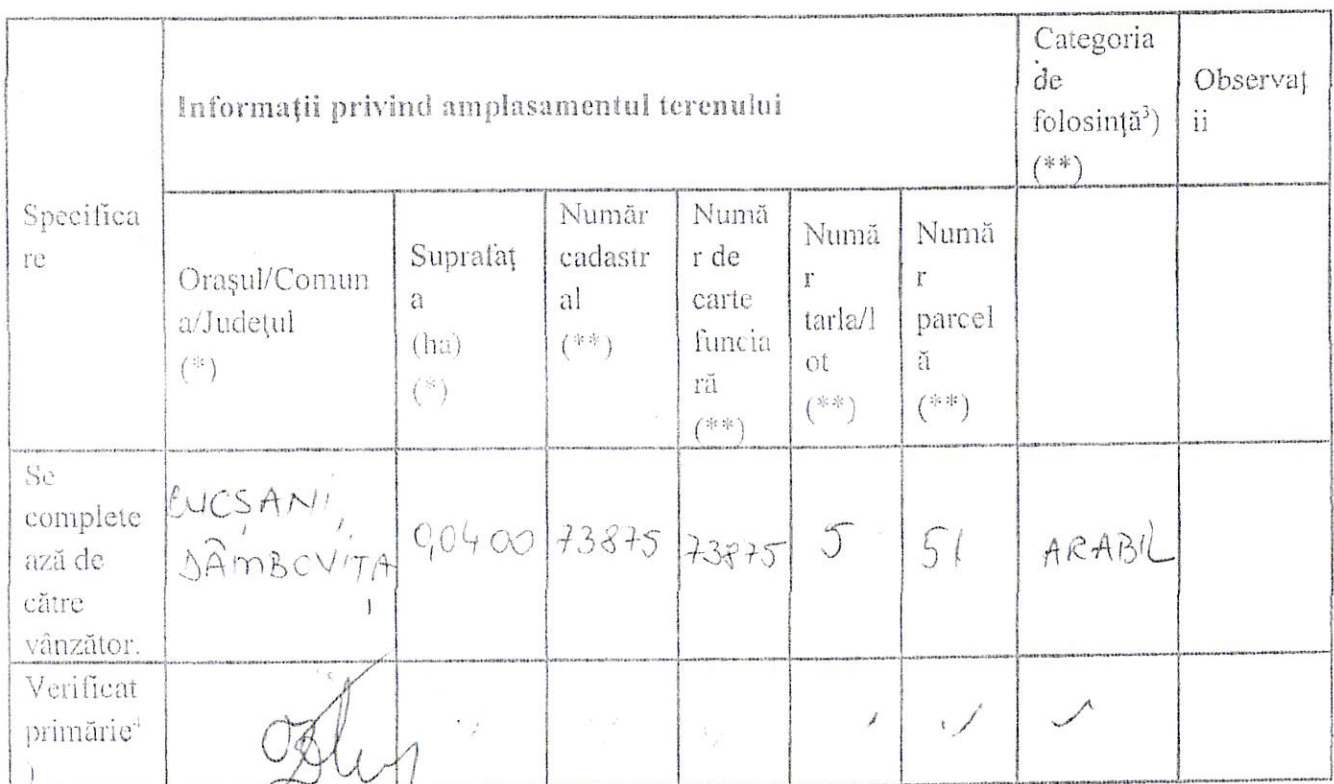 Informații privind amplasamentul terenului
Categoria
de
folosință³)
(**)
Observaț
ii
Specifica
re
Orașul/Comun
a/Județul
(*)
Suprafaț
a
(ha)
(*)
Număr
cadastr
al
(**)
Numă
r de
carte
funcia
ră
(**)
Numă
r
tarla/l
ot
(**)
Numă
r
parcel
ă
(**)
Se
complete
ază de
către
vânzător.
BUCȘANI,
DÂMBOVIȚA
0,0400
73875
73875
5
51
ARABIL
Verificat
primărie⁴
)